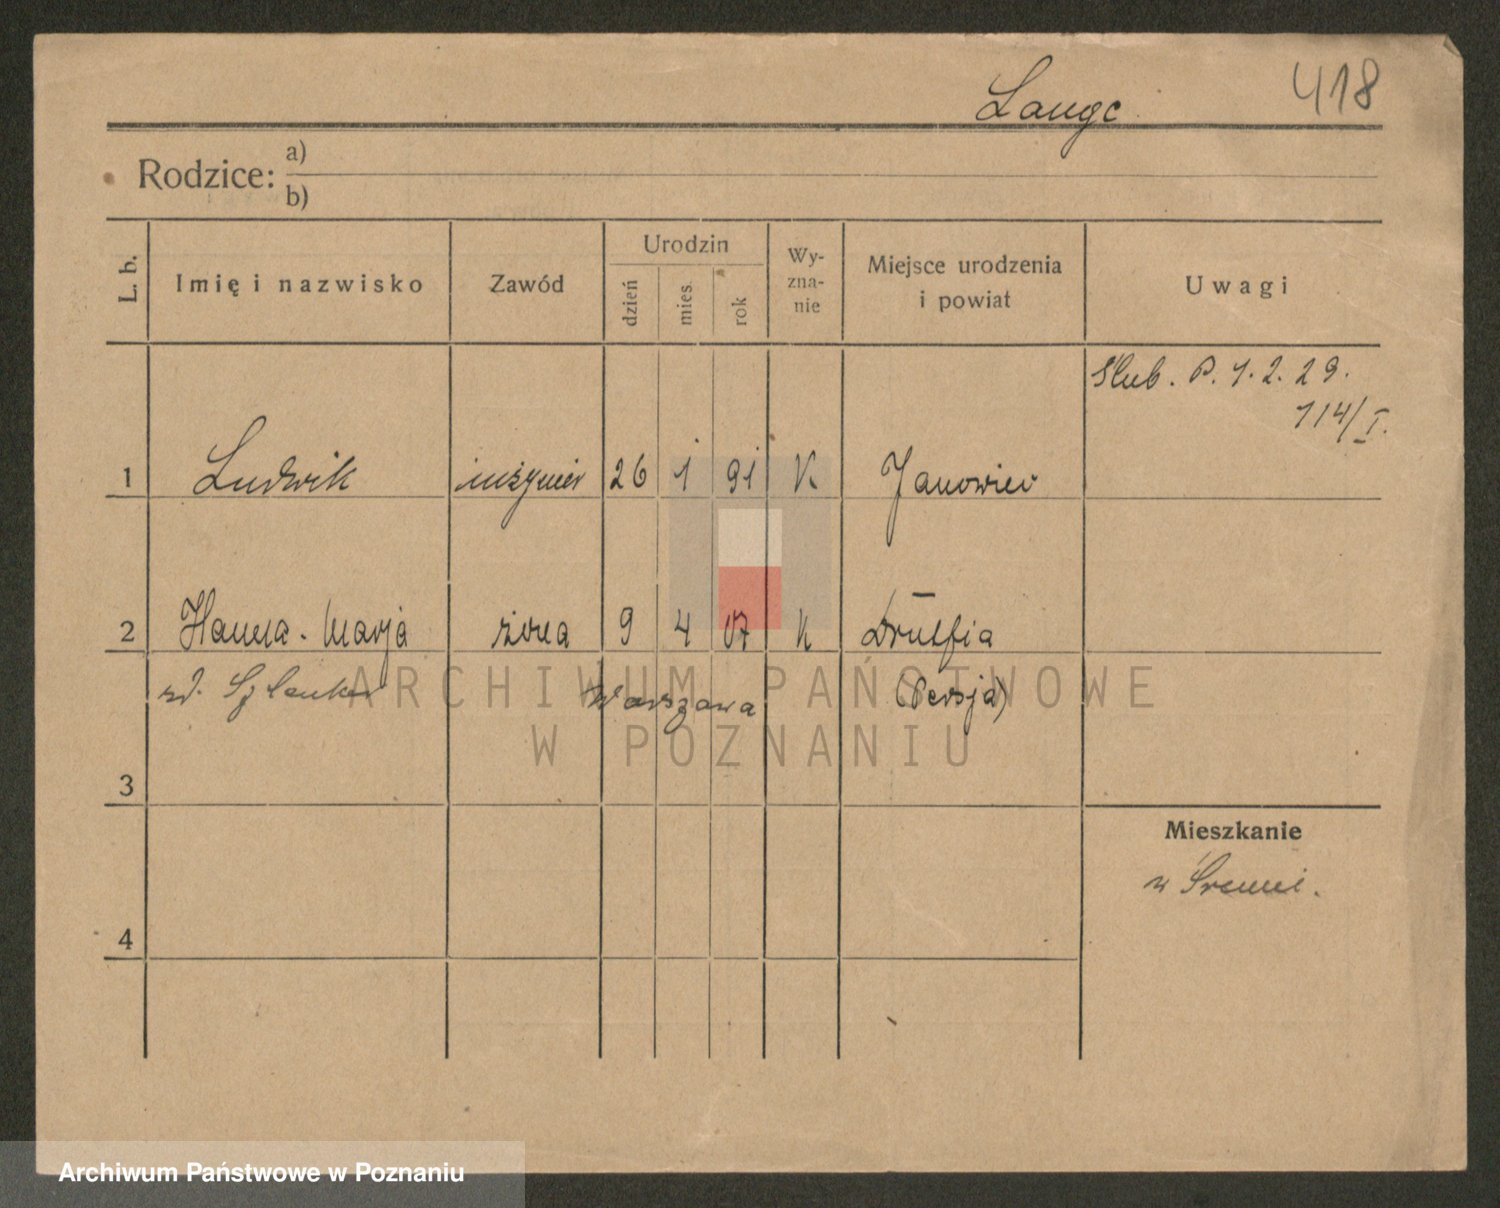 Lange
418
Rodzice: a)
b)
L. b.
Imię i nazwisko
Zawód
Urodzin
dzień
mies.
rok
Wy-
zna-
nie
Miejsce urodzenia
i powiat
Uwagi
Ślub. P. 1. 2. 29.
114/I.
1 Ludwik inżynier 26 1 91 K Janowiec
2 Hanna-Marja żona 9 4 07 K
zd. Szlenker Warszawa (Persja)
ARCHIWUM PAŃSTWOWE
W POZNANIU
3
Mieszkanie
w Śremie.
4
Archiwum Państwowe w Poznaniu